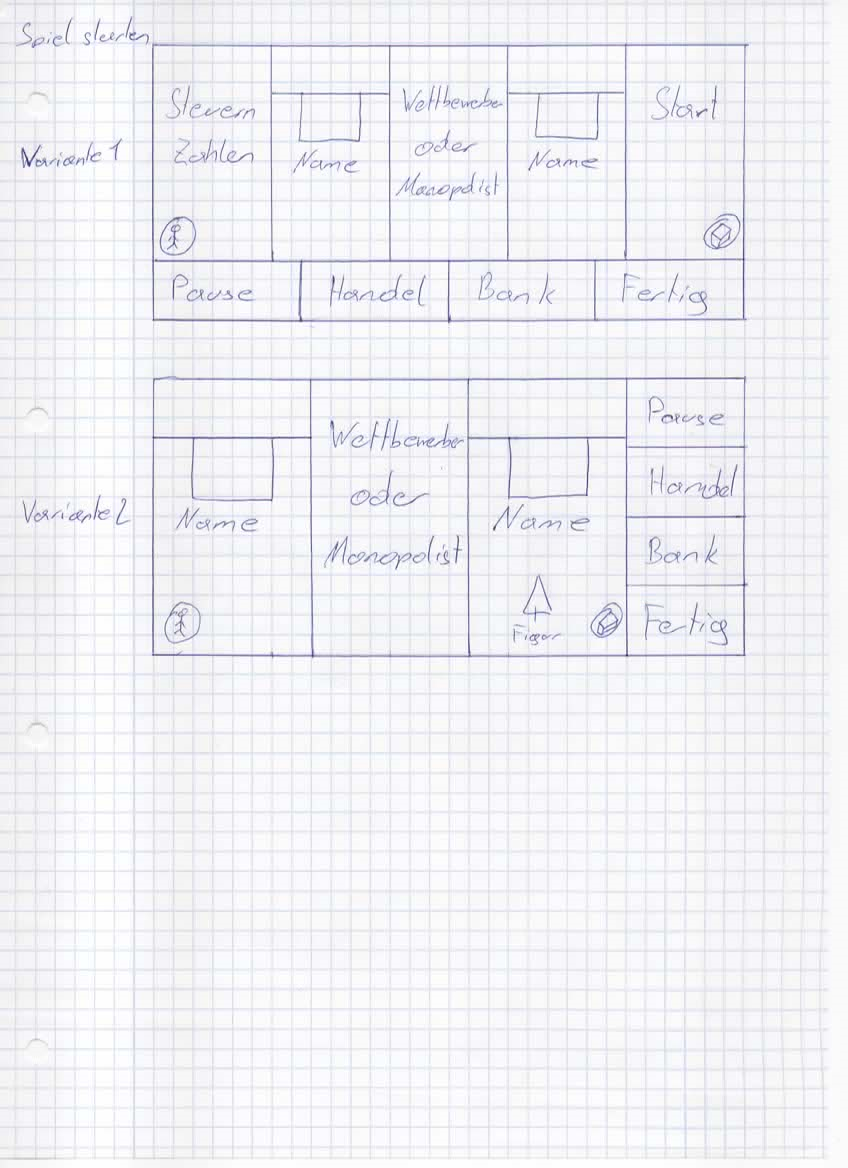 Spiel starten
Variante 1
Steuern
Zahlen
Name
Wettbewerber
oder
Monopolist
Name
Start
Pause
Handel
Bank
Fertig
Variante 2
Name
Wettbewerber
oder
Monopolist
Name
Figur
Pause
Handel
Bank
Fertig